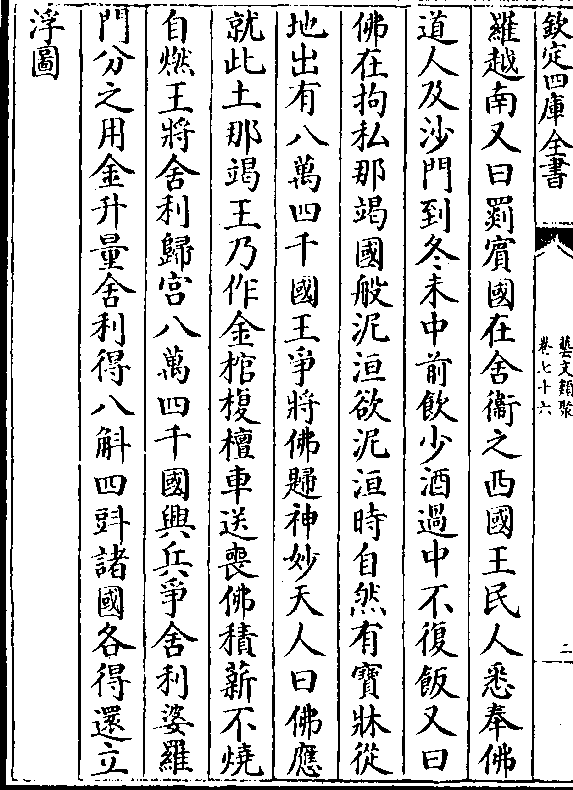 欽定四庫全書
藝文類聚
卷七十六
二
羅越南又曰罽賓國在舍衞之西國王民人悉奉佛
道人及沙門到冬未中前飲少酒過中不復飯又曰
佛在拘私那竭國般泥洹欲泥洹時自然有寳牀從
地出有八萬四千國王爭將佛歸神妙天人曰佛應
就此土那竭王乃作金棺榎檀車送喪佛積薪不燒
自燃王將舍利歸宫八萬四千國興兵爭舍利婆羅
門分之用金升量舍利得八斛四㪷諸國各得還立
浮圖